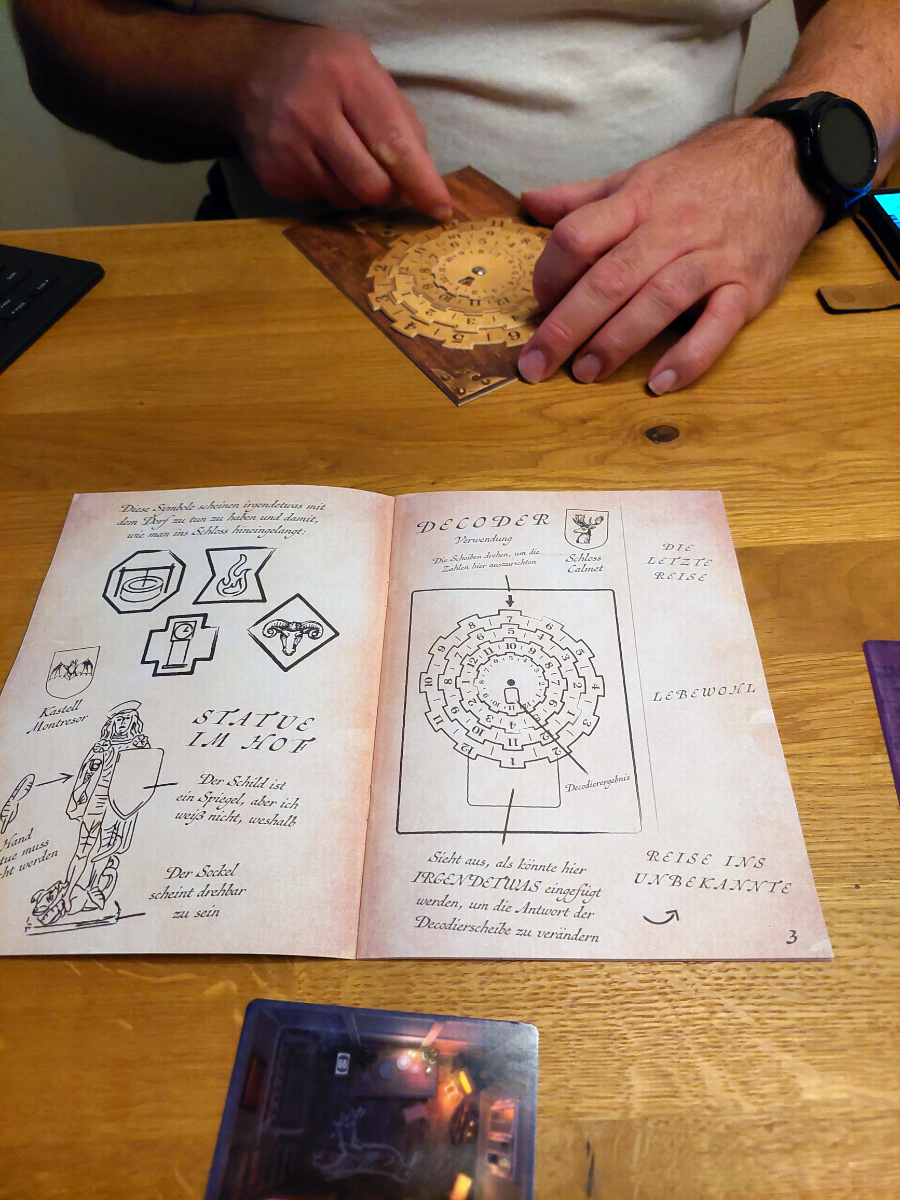 Diese Symbole scheinen irgendetwas mit
dem Dorf zu tun zu haben und damit,
wie man ins Schloss hineingelangt:
Kastell
Montresor
STATUE
IM HOF
Der Schild ist
ein Spiegel, aber ich
weiß nicht, weshalb
Hand
tue muss
ht werden
Der Sockel
scheint drehbar
zu sein
DECODER
Verwendung
Die Scheiben drehen, um die
Zahlen hier auszurichten
Schloss
Calmet
Decodierergebnis
Sieht aus, als könnte hier
IRGENDETWAS eingefügt
werden, um die Antwort der
Decodierscheibe zu verändern
DIE
LETZTE
REISE
LEBEWOHL
REISE INS
UNBEKANNTE
3